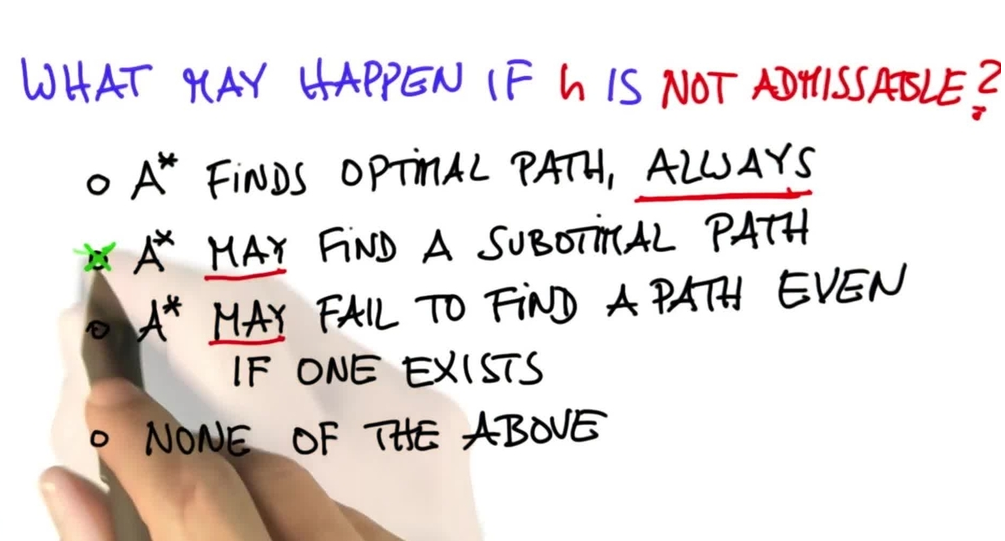 WHAT MAY HAPPEN IF h IS NOT ADMISSABLE?
o A* FINDS OPTIMAL PATH, ALWAYS
A* MAY FIND A SUBOTIMAL PATH
o A* MAY FAIL TO FIND A PATH EVEN
IF ONE EXISTS
o NONE OF THE ABOVE